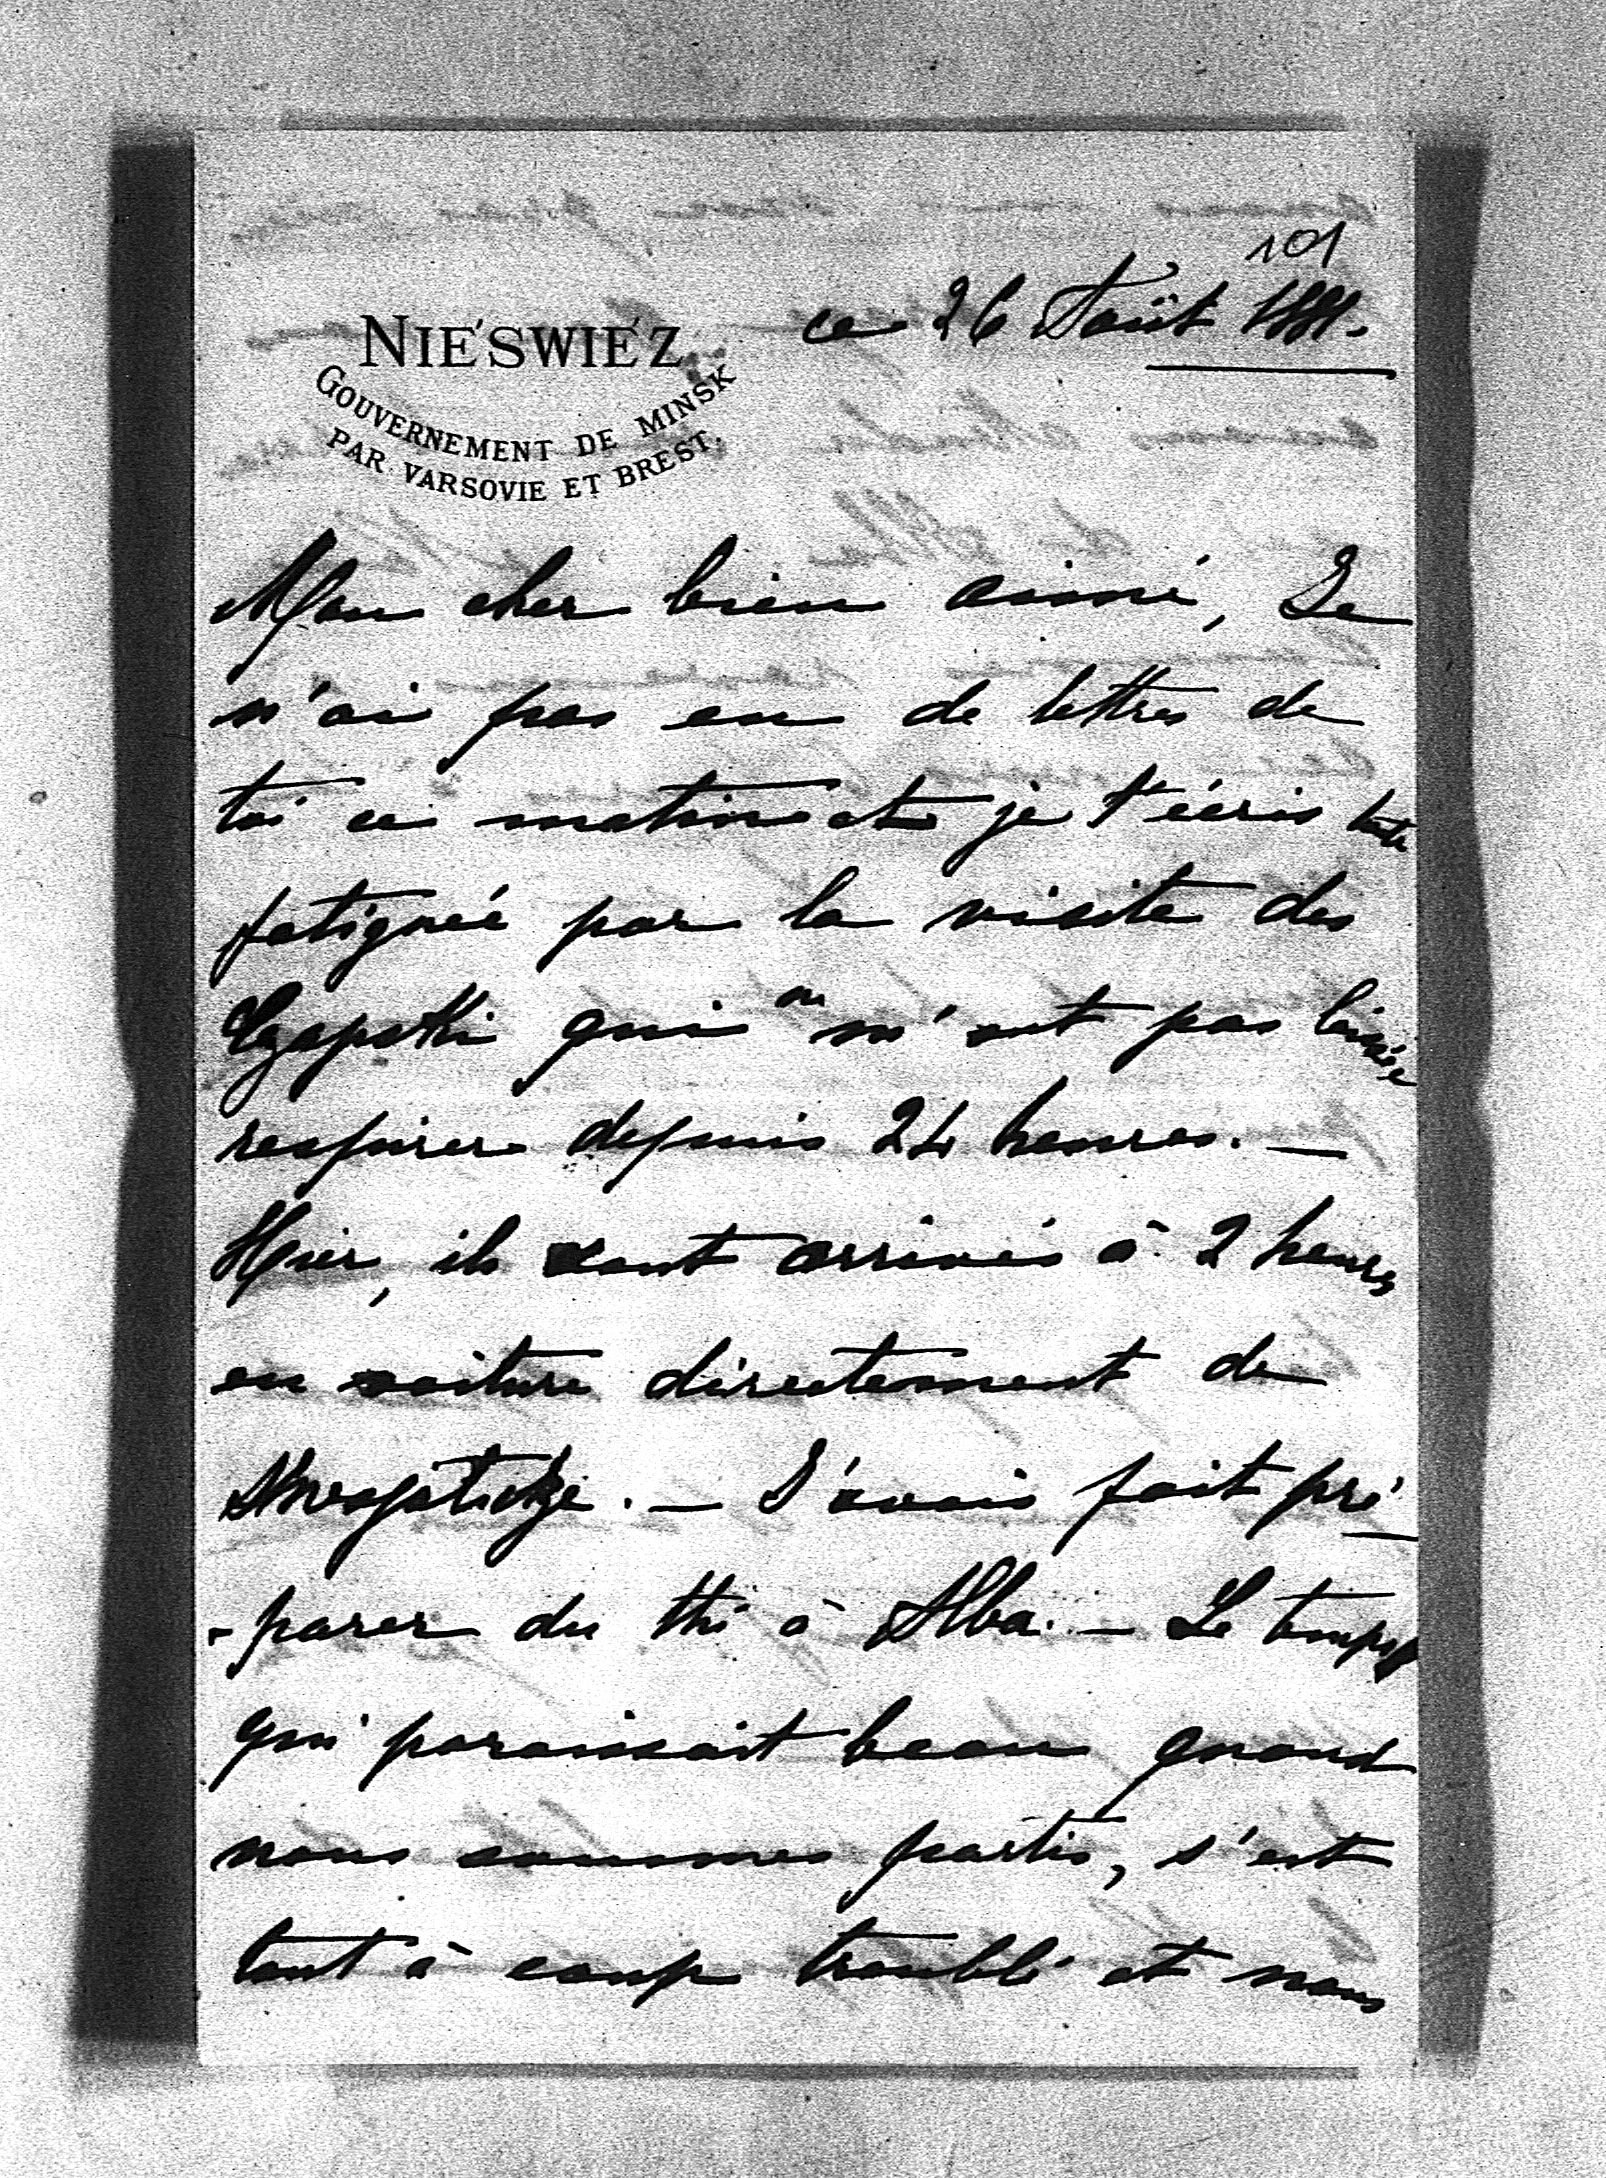 101
ce 26 Août
NIEŚWIEZ
GOUVERNEMENT DE MINSK
PAR VARSOVIE ET BREST.
Mon cher bien aimé, Je
n'ai pas eu de lettres de
toi ce matin et je t'écris toute
fatiguée par la visite des
Czapski qui ne m'ont pas laissée
respirer depuis 24 heures. —
Hier, ils sont arrivés à 2 heures
en voiture directement de
— J'avais fait pré-
-parer du thé à Alba. — Le temps
qui paraissait beau quand
nous sommes partis, s'est
tout à coup troublé et nous